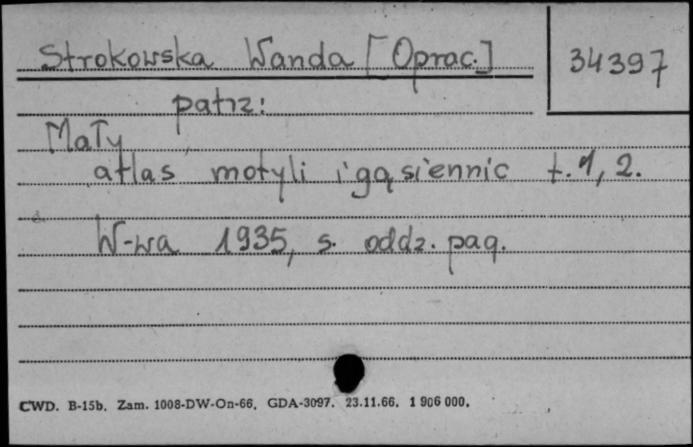 Strokowska Wanda [Oprac.]
34397
patrz:
Mały
atlas motyli i gąsiennic t. 1, 2.
W-wa 1935, s. oddz. pag.
CWD. B-15b. Zam. 1008-DW-On-66. GDA-3097. 23.11.66. 1 906 000.